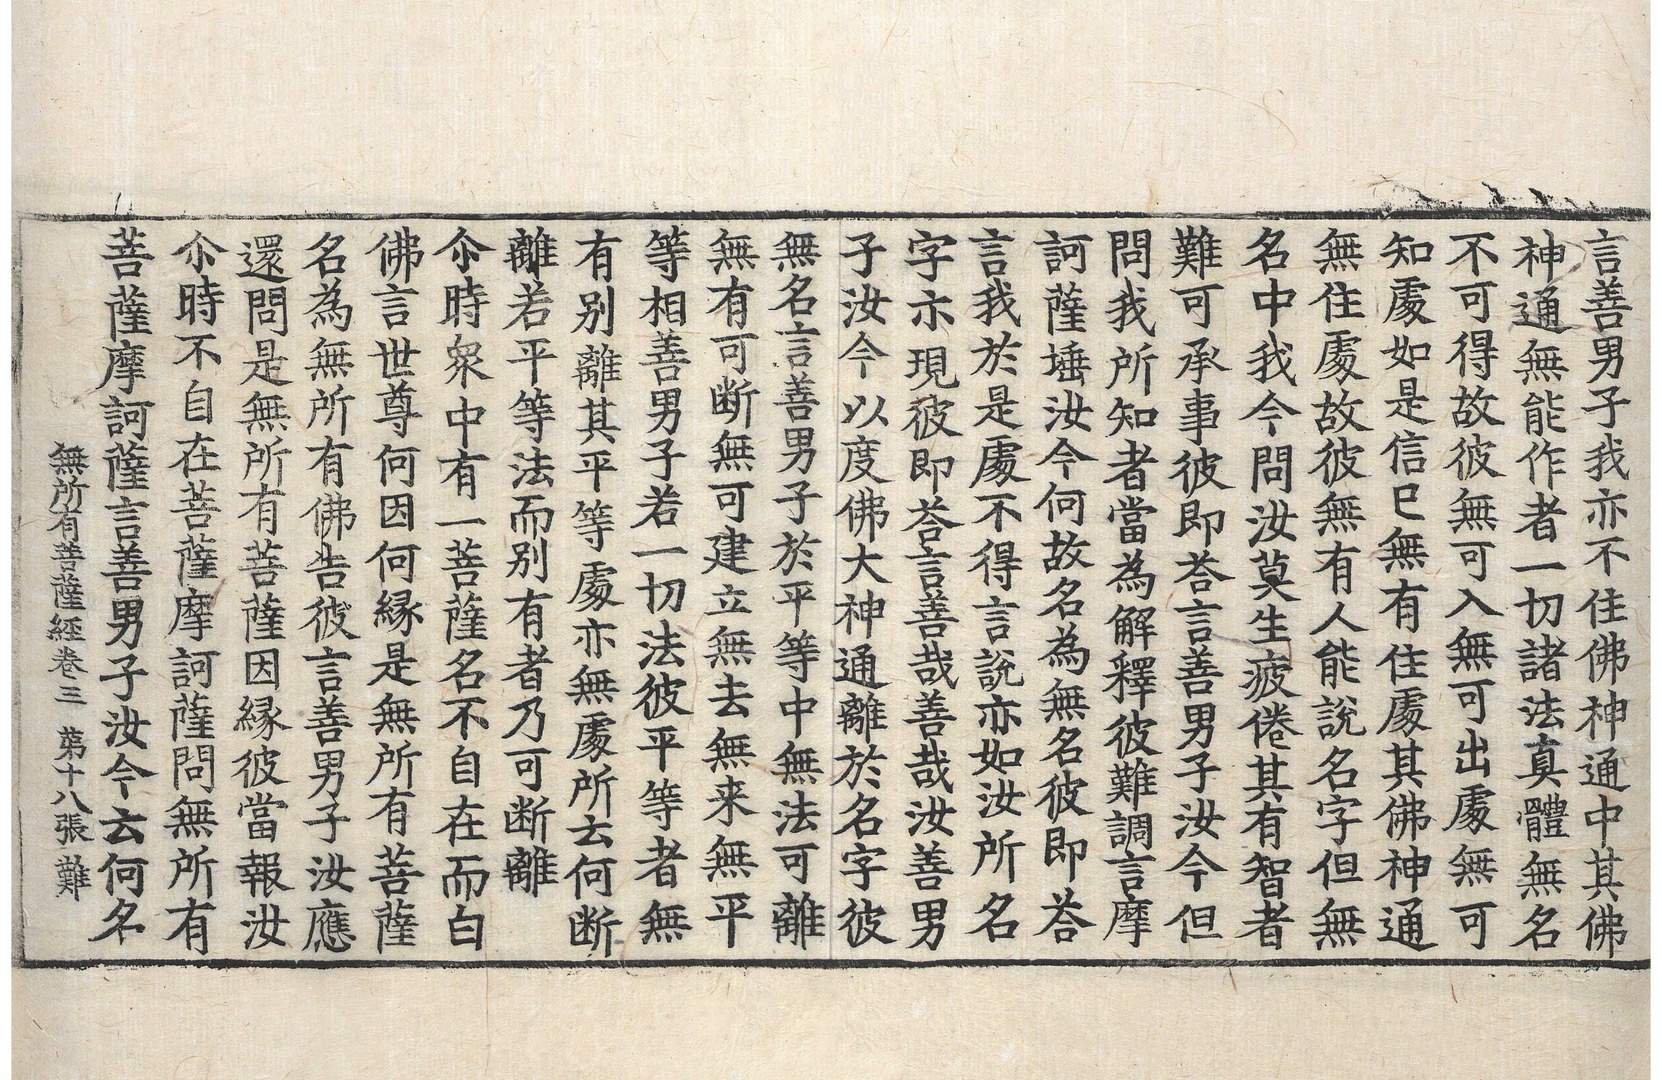 言善男子我亦不住佛神通中其佛
神通無能作者一切諸法真體無名
不可得故彼無可入無可出處無可
知處如是信已無有住處其佛神通
無住處故彼無有人能說名字但無
名中我今問汝莫生疲倦其有智者
難可承事彼即荅言善男子汝今但
問我所知者當為解釋彼難調言摩
訶薩埵汝今何故名為無名彼即荅
言我於是處不得言說亦如汝所名
字亦現彼即荅言善哉善哉汝善男
子汝今以度佛大神通離於名字彼
無名言善男子於平等中無法可離
無有可断無可建立無去無来無平
等相善男子若一切法彼平等者無
有別離其平等處亦無處所云何断
離若平等法而別有者乃可断離
尒時衆中有一菩薩名不自在而白
佛言世尊何因何緣是無所有菩薩
名為無所有佛告彼言善男子汝應
還問是無所有菩薩因緣彼當報汝
尒時不自在菩薩摩訶薩問無所有
菩薩摩訶薩言善男子汝今云何名
無所有菩薩經卷三 第十八張 難